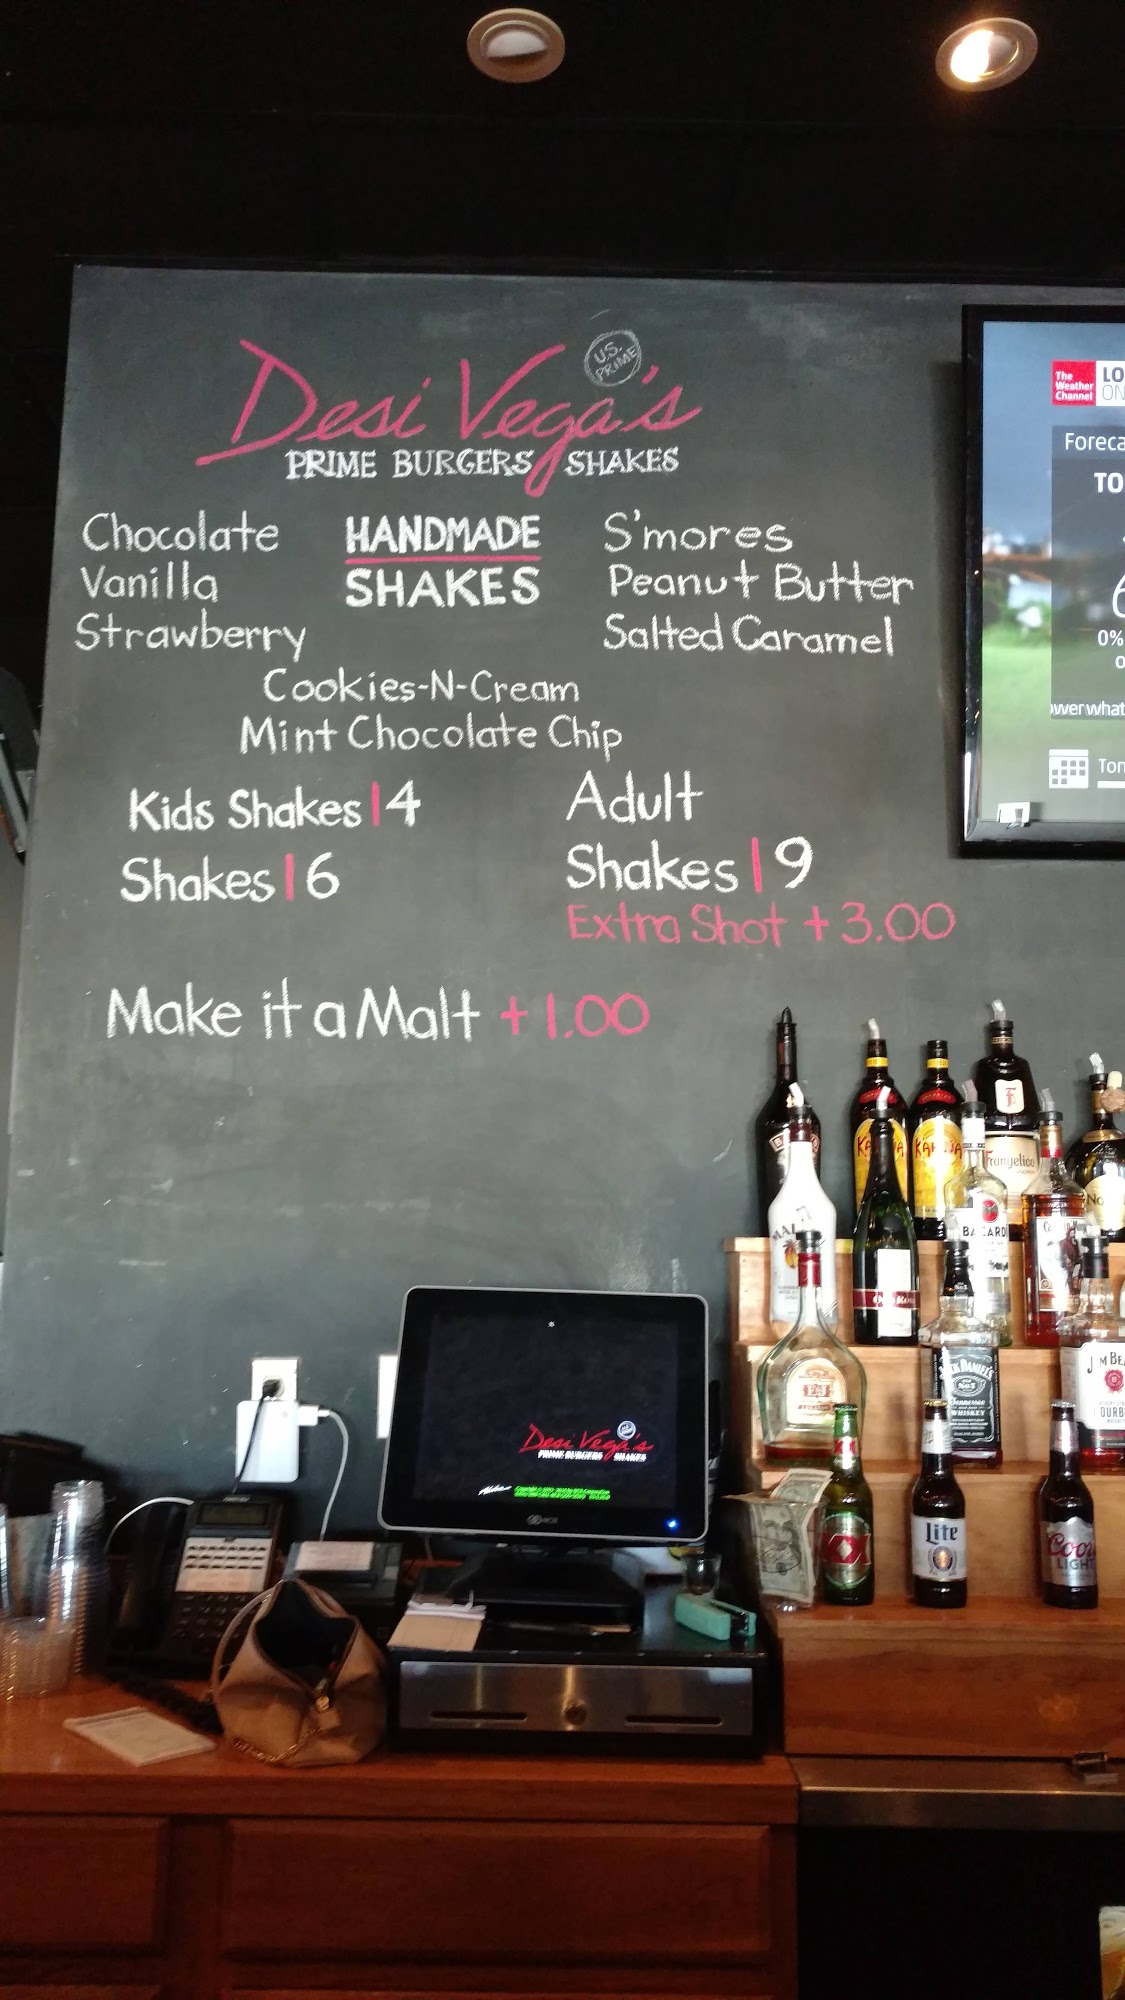 U.S.
PRIME
Desi Vega's
PRIME BURGERS SHAKES
Chocolate
Vanilla
Strawberry
HANDMADE
SHAKES
S'mores
Peanut Butter
Salted Caramel
Cookies-N-Cream
Mint Chocolate Chip
Kids Shakes | 4
Shakes | 6
Adult
Shakes | 9
Extra Shot + 3.00
Make it a Malt + 1.00
The
Weather
Channel
LO
ON
Foreca
TO
0%
Ton
Frangelico
BACARDI
E&J
JACK DANIEL'S
Tennessee
WHISKEY
JIM BEA
XX
Lite
Coors
LIGHT
Desi Vega's
PRIME BURGERS SHAKES